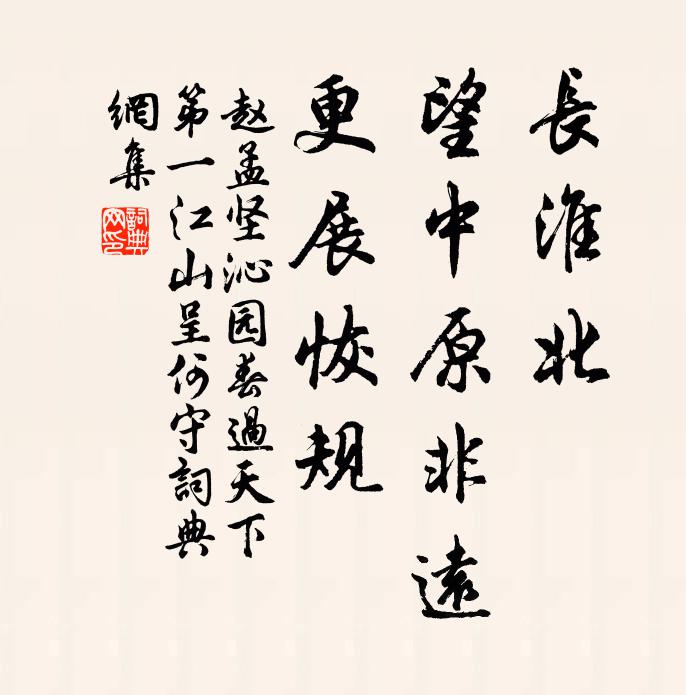 長淮北
望中原非遠
更展恢规
赵孟坚沁园春過天下
第一江山呈何守詞典
網集
詞典网印